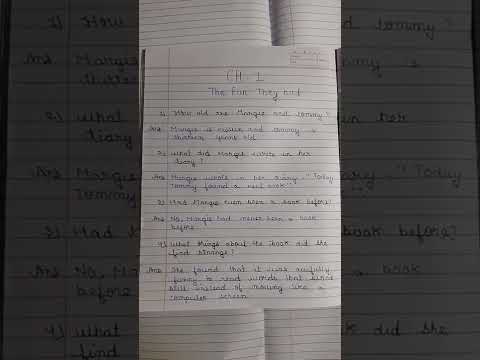 CH - 1
The Fun They had
1) How old are Margie and Tommy?
Ans Margie is eleven and Tommy is
thirteen years old.
2) What did Margie write in her
diary?
Ans Margie wrote in her diary, "Today
Tommy found a real book".
3) Had Margie ever seen a book before?
Ans No, Margie had never seen a book
before.
4) What things about the book did she
find strange?
Ans She found that it was awfully
funny to read words that stood
still instead of moving like a
computer screen